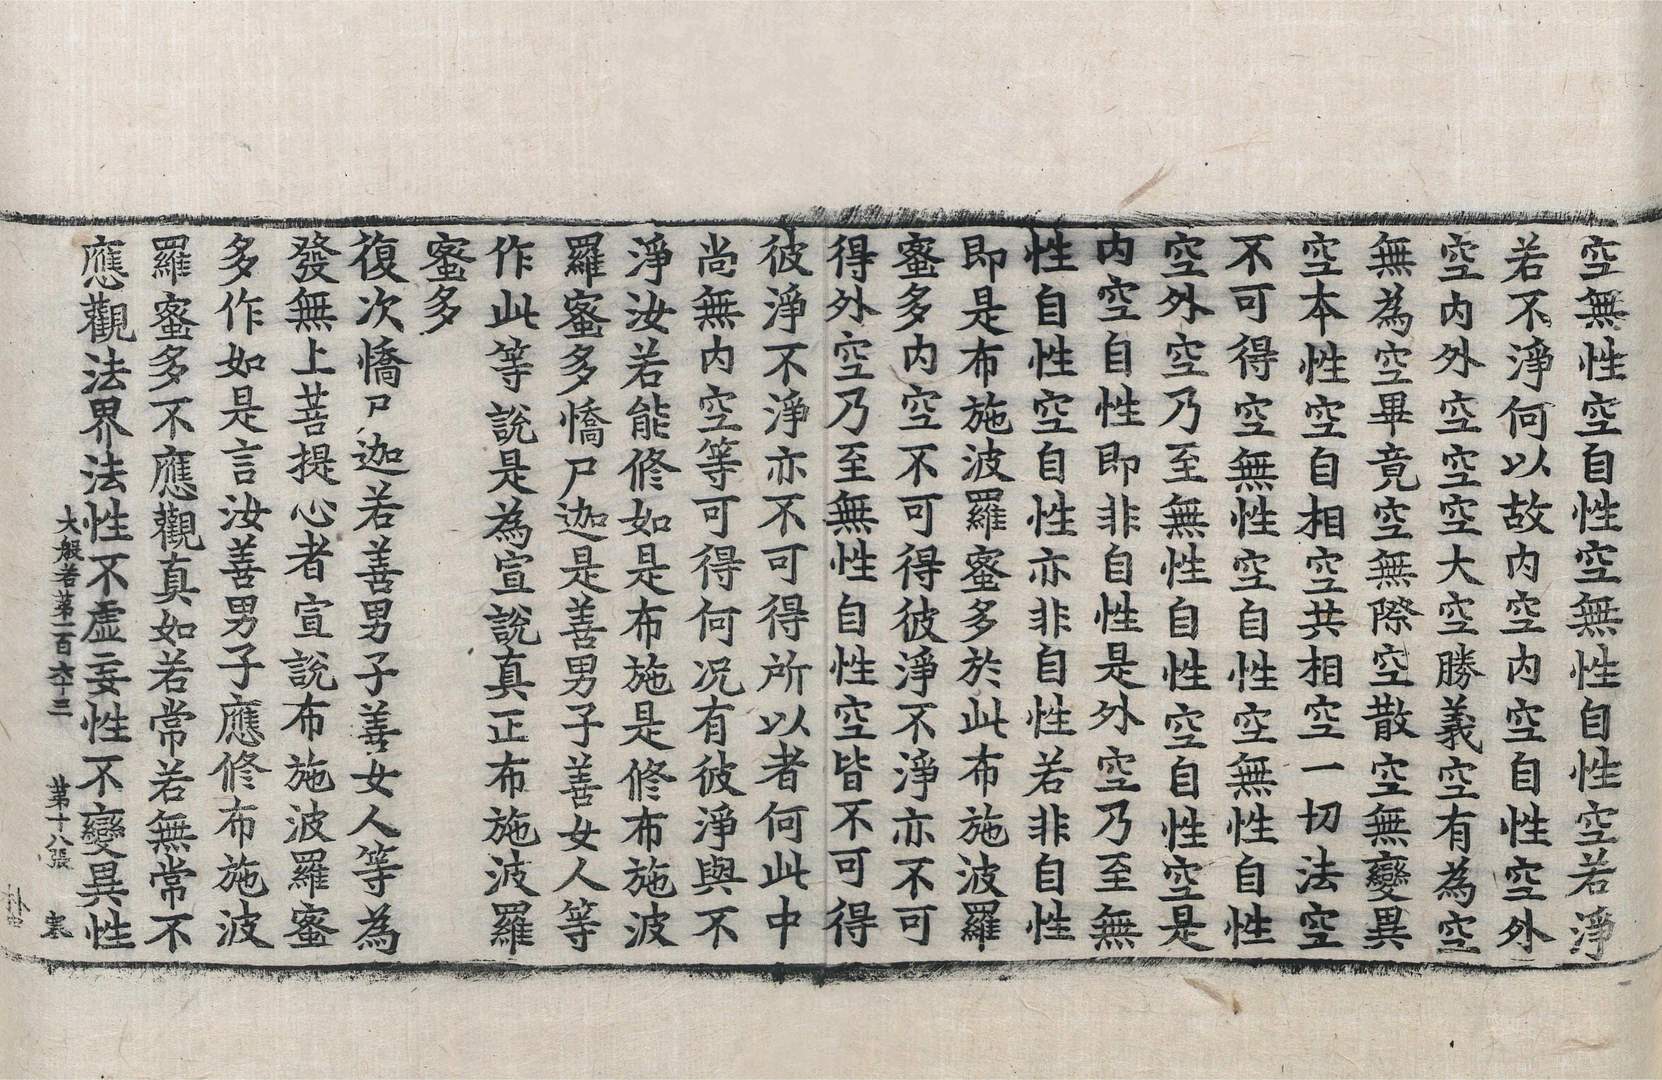 空無性空自性空無性自性空若淨
若不淨何以故内空内空自性空外
空内外空空空大空勝義空有為空
無為空畢竟空無際空散空無變異
空本性空自相空共相空一切法空
不可得空無性空自性空無性自性
空外空乃至無性自性空自性空是
内空自性即非自性是外空乃至無
性自性空自性亦非自性若非自性
即是布施波羅蜜多於此布施波羅
蜜多内空不可得彼淨不淨亦不可
得外空乃至無性自性空皆不可得
彼淨不淨亦不可得所以者何此中
尚無内空等可得何況有彼淨與不
淨汝若能修如是布施是修布施波
羅蜜多憍尸迦是善男子善女人等
作此等說是為宣說真正布施波羅
蜜多
復次憍尸迦若善男子善女人等為
發無上菩提心者宣說布施波羅蜜
多作如是言汝善男子應修布施波
羅蜜多不應觀真如若常若無常不
應觀法界法性不虛妄性不變異性
大般若第一百六十三 第十八張